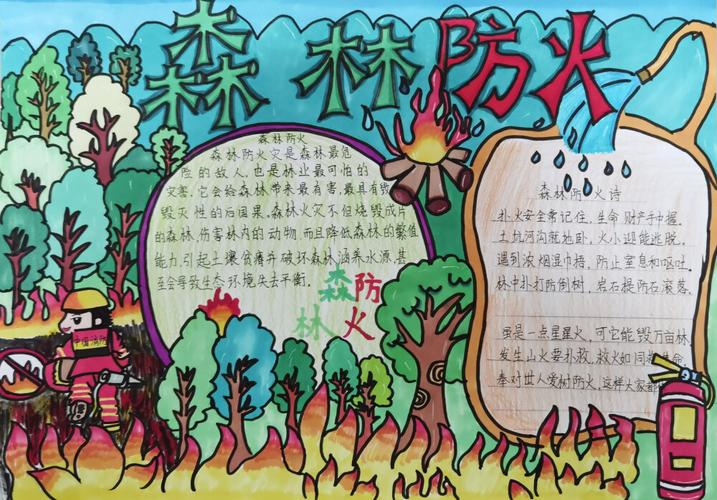 森林防火
森林防火
森林防火灾是森林最危
险的敌人,也是林业最可怕的
灾害,它会给森林带来最有害,最具有毁
毁灭性的后国果,森林火灾不但烧毁成片
的森林,伤害林内的动物,而且降低森林的繁殖
能力,引起土壤贫瘠并破坏森林涵养水源,甚
至会导致生态环境失去平衡.
森防
林火
森林防火诗
扑火安全常记住,生命财产手中握.
土坑河沟就地卧,火小迎能逃脱.
遇到浓烟湿巾捂,防止窒息和呕吐.
林中扑打防倒树,岩石提防石滚落.
虽是一点星星火,可它能毁万亩林.
发生山火要扑救,救火如同救生命
奉对世人爱树防火,这样大家都
中国消防